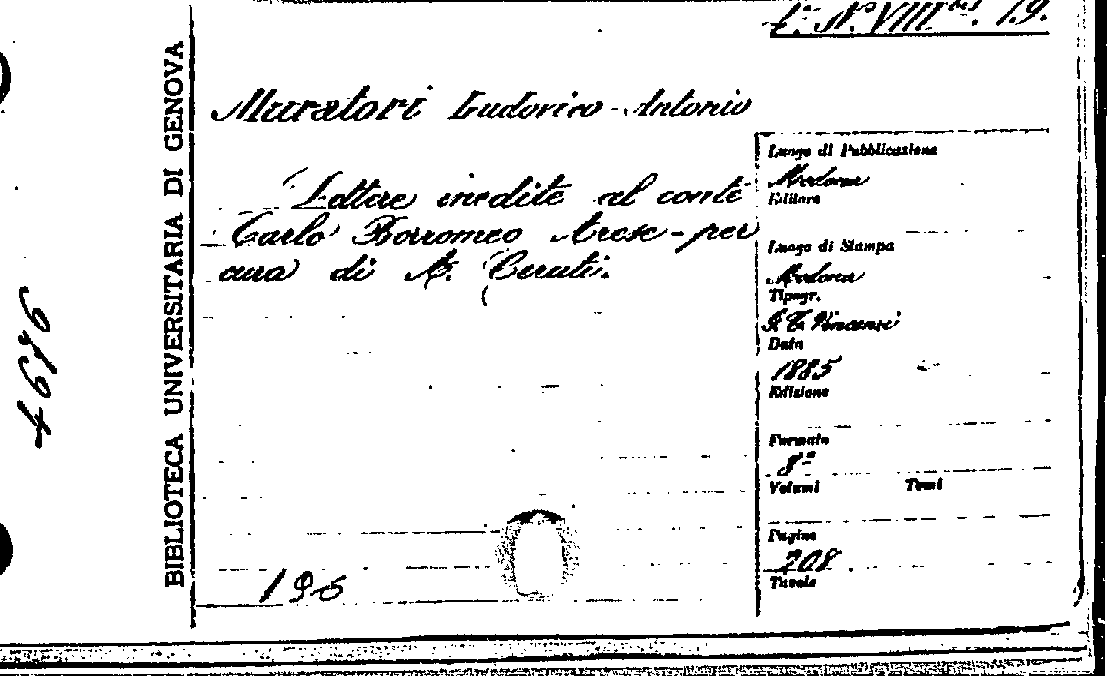 4.a N.o VIII bis. 19.
Muratori Ludovico-Antonio
Lettere inedite al conte
Carlo Borromeo Arese - per
cura di A. Ceruti.
196
Luogo di Pubblicazione
Modena
Editore
Luogo di Stampa
Modena
Tipogr.
Vincenzi
Data
1885
Edizione
Formato
8°
Volumi Tomi
Pagine
208
Tavole
BIBLIOTECA UNIVERSITARIA DI GENOVA